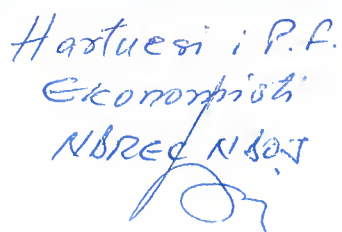 Hartuesi i P.F.
Ekonomisti
NDREC